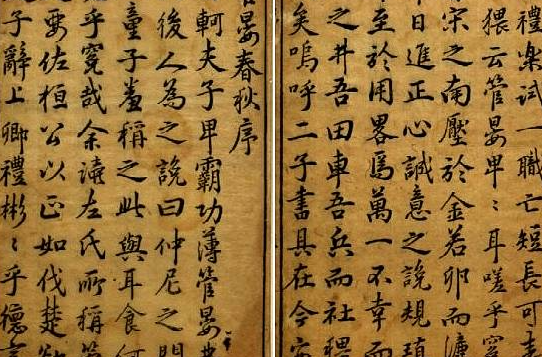 禮樂試一職亡短長可
猥云管晏卑〻耳嗟乎
宋之南壓於金若卵而
日進正心誠意之說規
至於用畧為萬一不幸而
之井吾田車吾兵而社稷
矣嗚呼二子書具在今
晏春秋序
軻夫子卑霸功薄管晏
後人為之說曰仲尼之門
童子羞稱之此與耳食
乎冤哉余讀左氏所稱
要佐桓公以正如伐楚
子辭上卿禮彬〻乎德